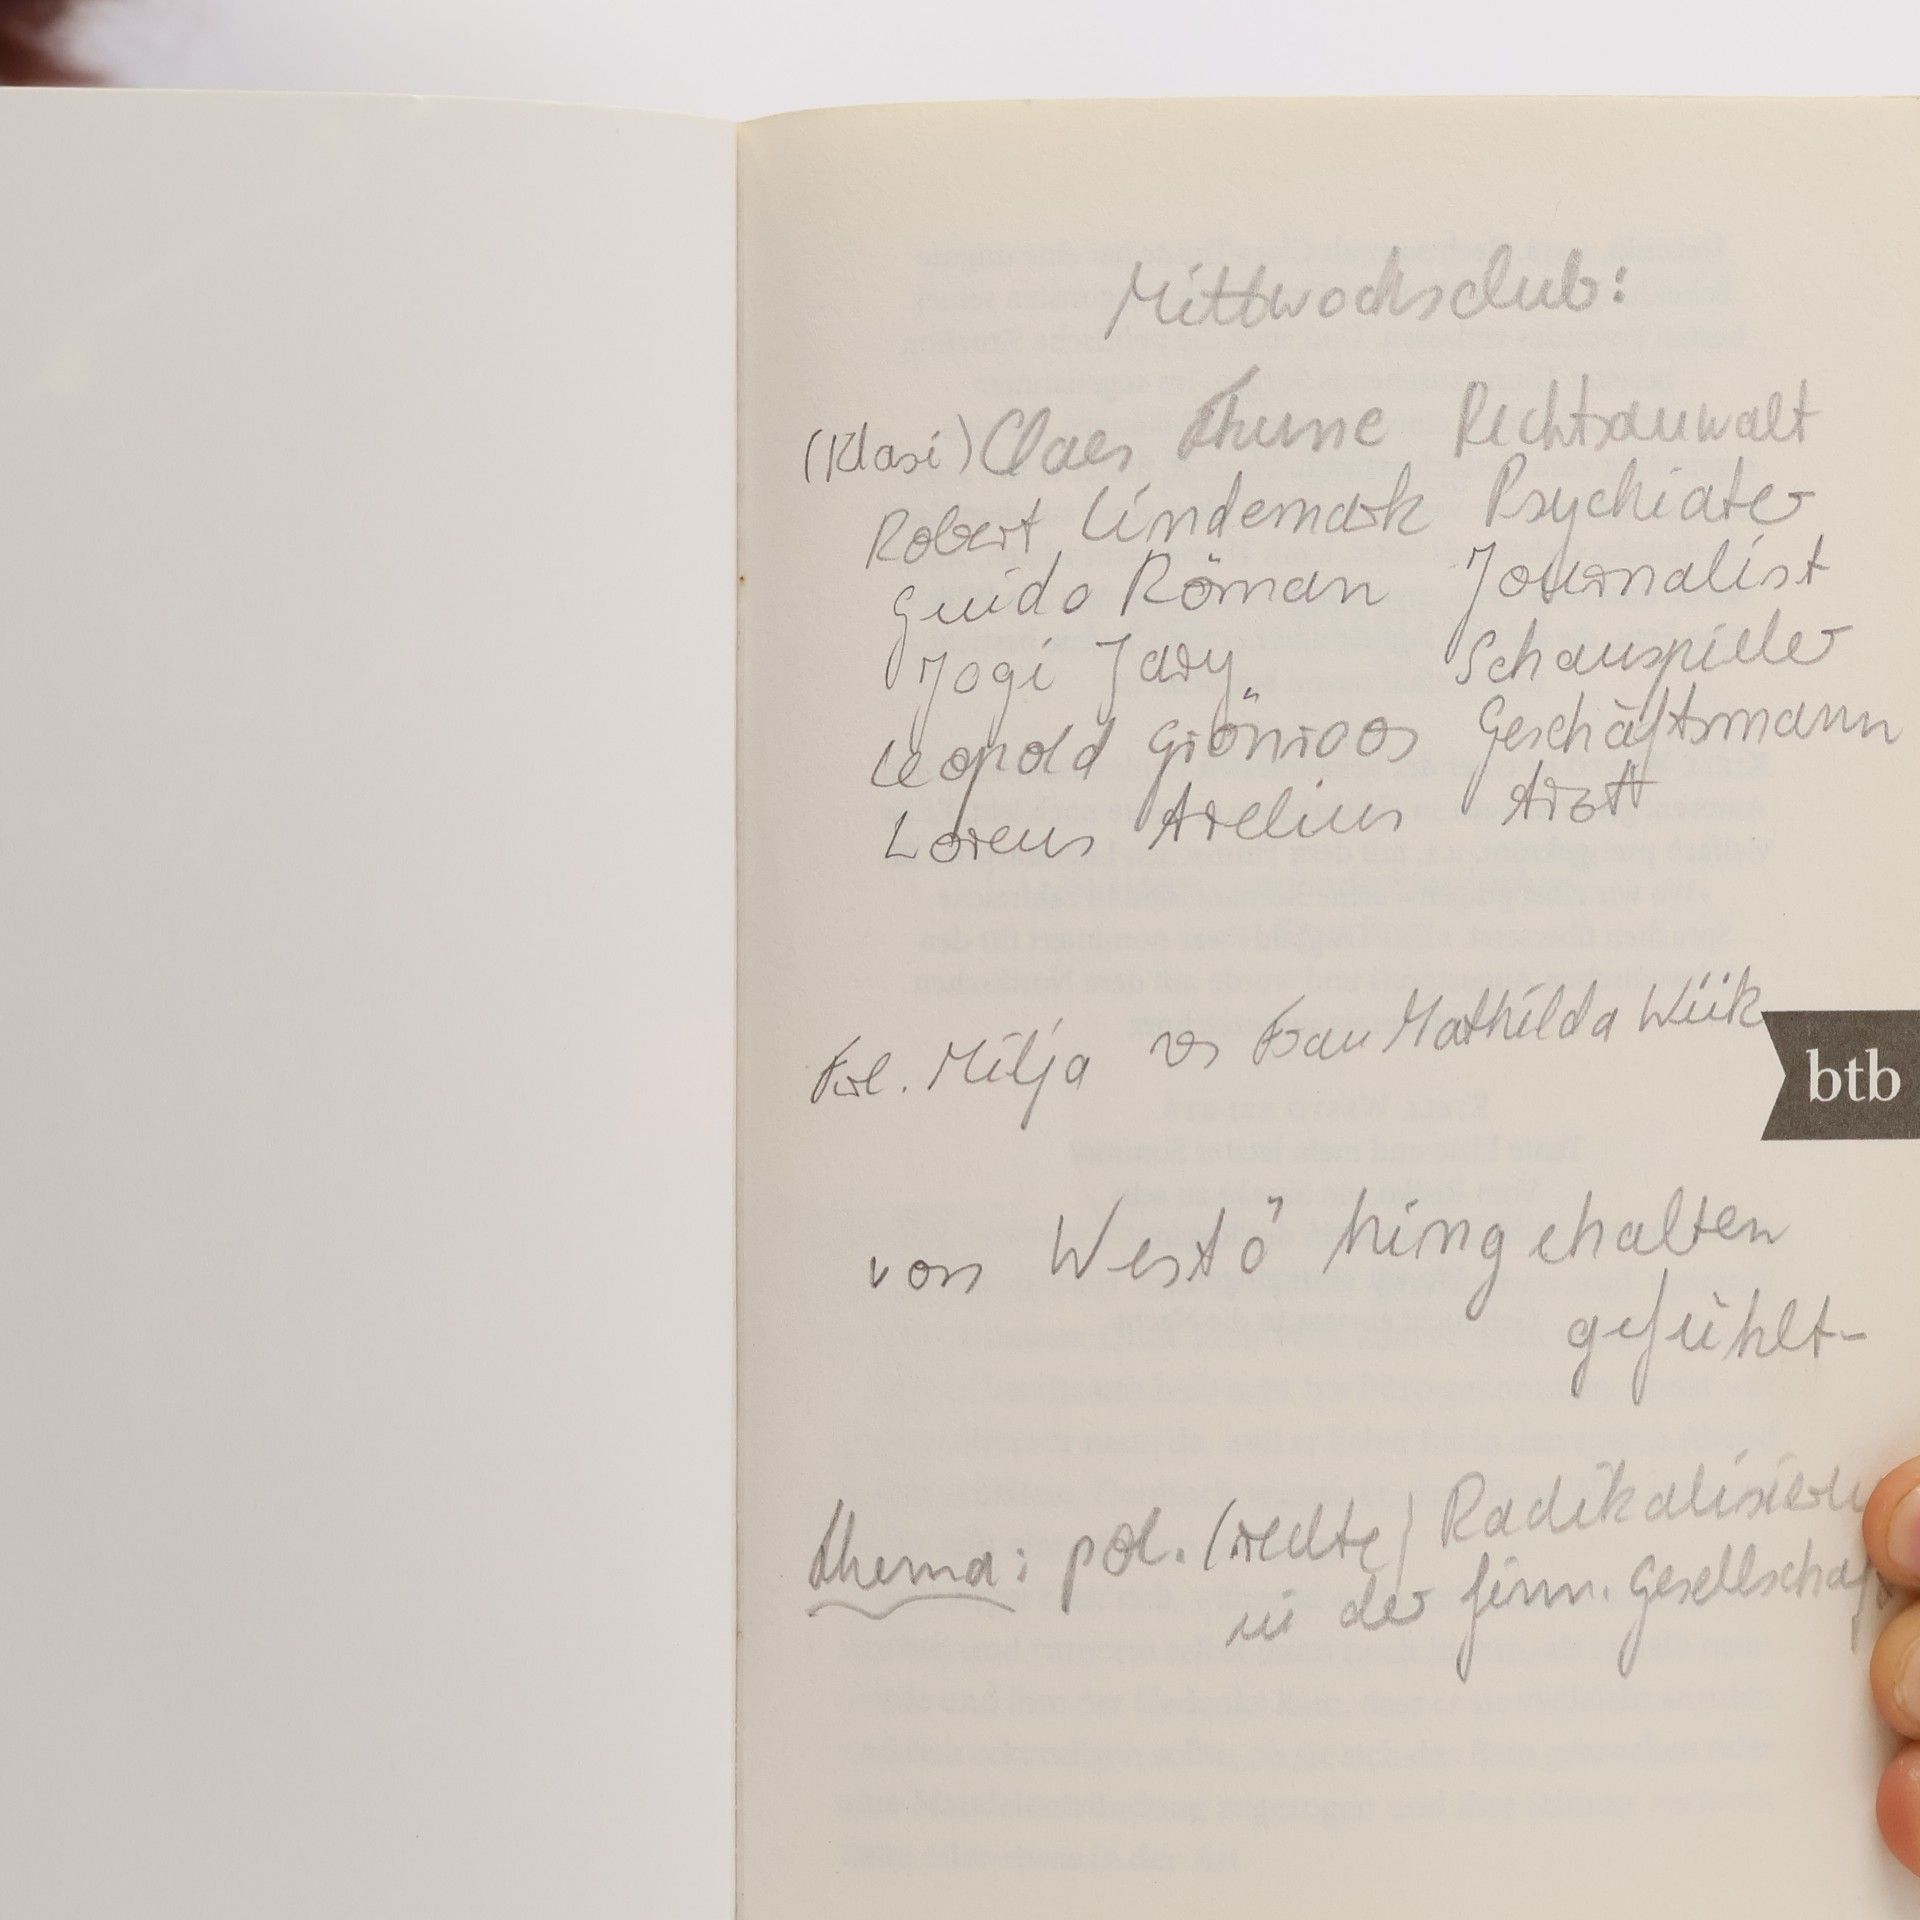 Mittwochsclub:
(Klasi) Claes Thune Rechtsanwalt
Robert Lindemark Psychiater
Guido Röman Journalist
Jogi Jary Schauspieler
Leopold Grönroos Geschäftsmann
Lorens Arelius Arzt
Frl. Milja vs Frau Mathilda Wiik
btb
von Westö hingehalten
gefühlt-
Thema: pol. (rechte) Radikalisieru
in der finn. Gesellschaft